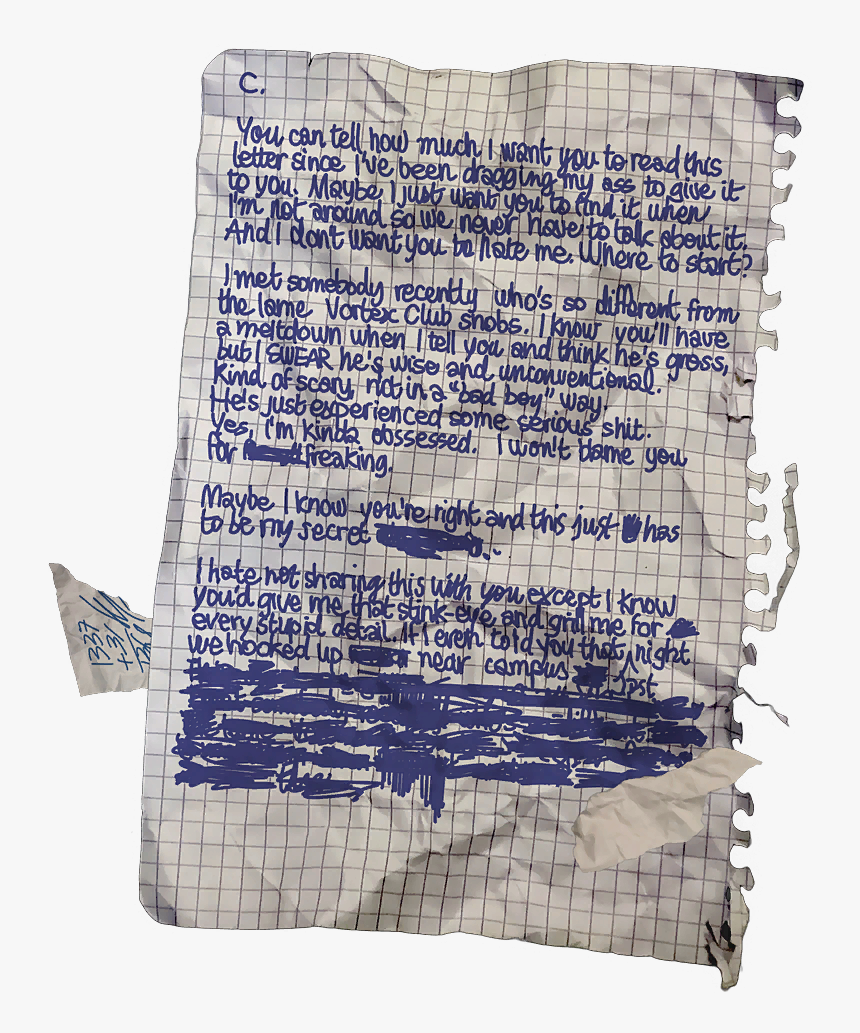 C.
You can tell how much I want you to read this
letter since I've been dragging my ass to give it
to you. Maybe I just want you to find it when
I'm not around so we never have to talk about it.
And I don't want you to hate me. Where to start?
I met somebody recently who's so different from
the lame Vortex Club snobs. I know you'll have
a meltdown when I tell you and think he's gross,
but I SWEAR he's wise and unconventional.
Kind of scary, not in a "bad boy" way.
He's just experienced some serious shit.
Yes, I'm kinda obssessed. I won't blame you
for freaking.
Maybe I know you're right and this just has
to be my secret
I hate not sharing this with you except I know
you'd give me that stink-eye and grill me for
every stupid detail. If I even told you that night
we hooked up near campus
1337